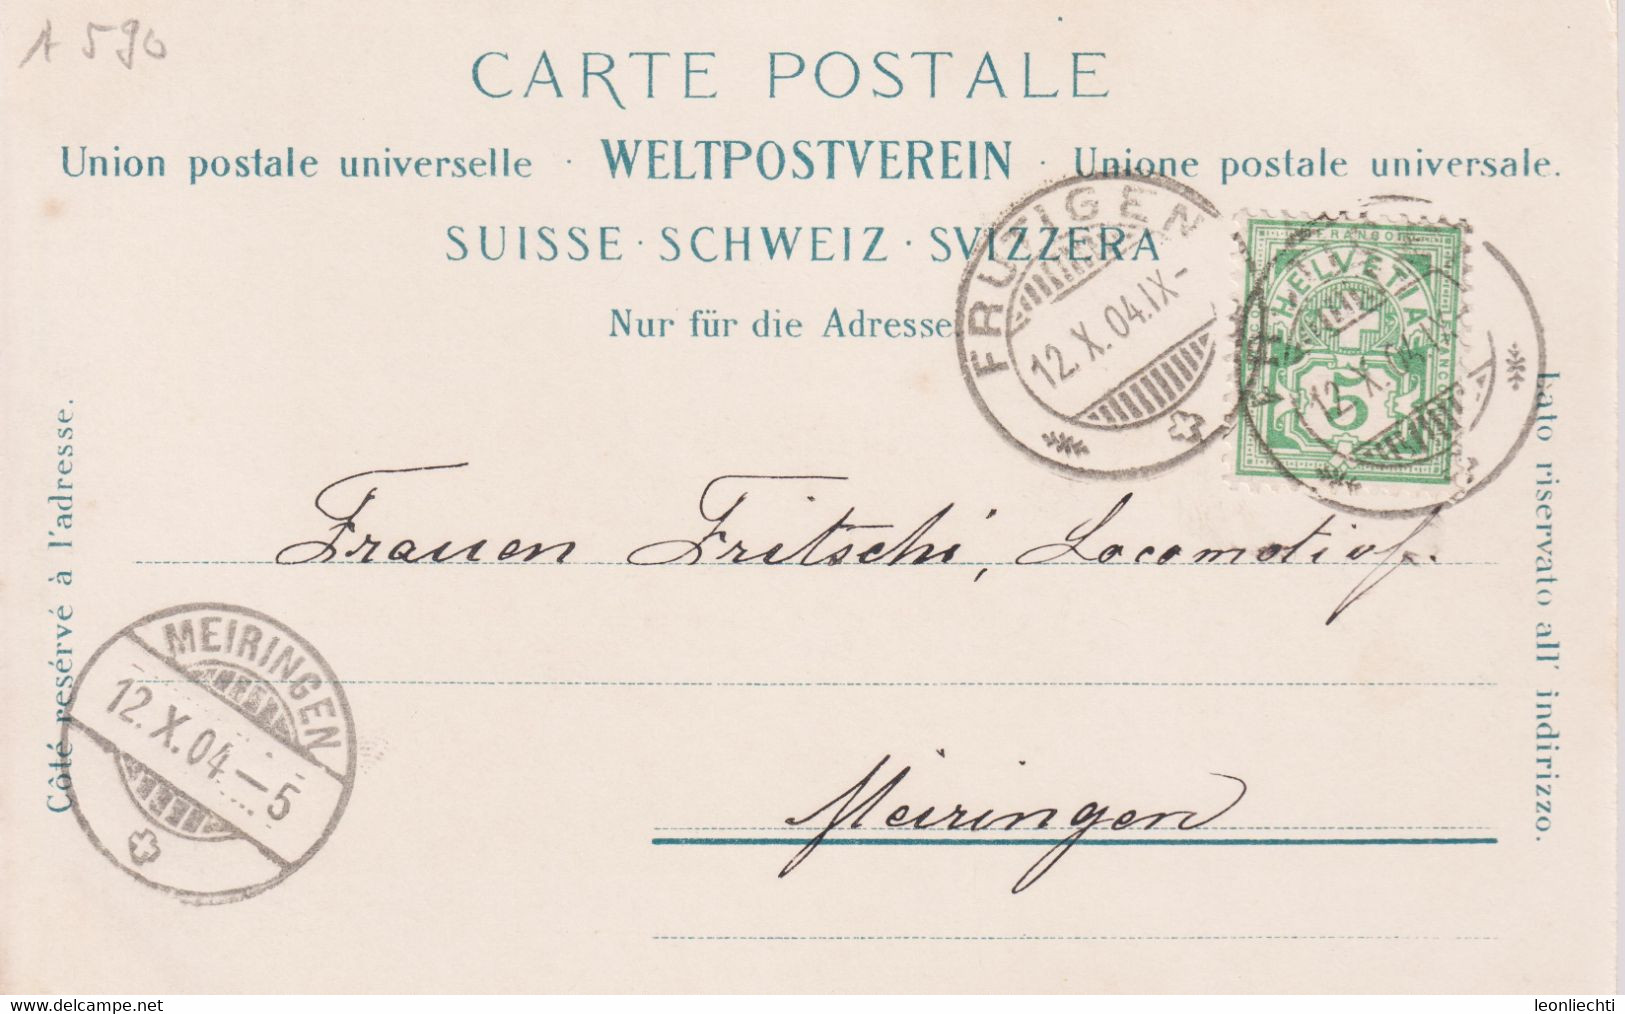 A 590
CARTE POSTALE
Union postale universelle · WELTPOSTVEREIN · Unione postale universale.
SUISSE · SCHWEIZ · SVIZZERA
Nur für die Adresse
FRUTIGEN
12.X.04.IX-
FRANCO
HELVETIA
5
12.X.04.IX
Côté resérvé à l'adresse.
Lato riservato all' indirizzo.
Frauen Fritschi, Locomotivf.
MEIRINGEN
12.X.04-5
Meiringen
leonliechti